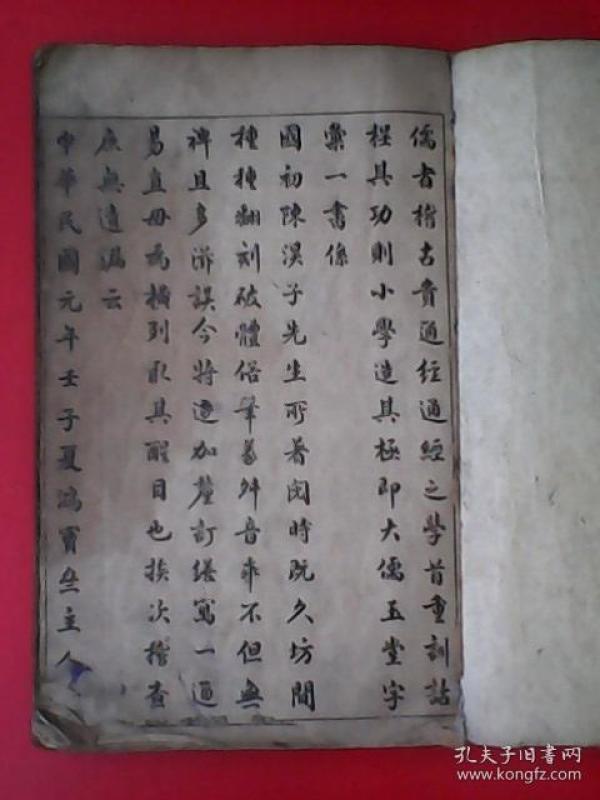 儒者稽古貴通經通經之學首重訓詁
程其功則小學造其極即大儒玉堂字
彙一書係
國初陳淏子先生所著閱時既久坊間
種種翻刻破體俗筆義舛音乖不但無
裨且多滋誤今將逐加釐訂繕寫一通
易直毋為橫列取其醒目也挨次稽查
庶無遺漏云
中華民國元年壬子夏鴻寶齋主人
孔夫子旧書网
www.kongfz.com